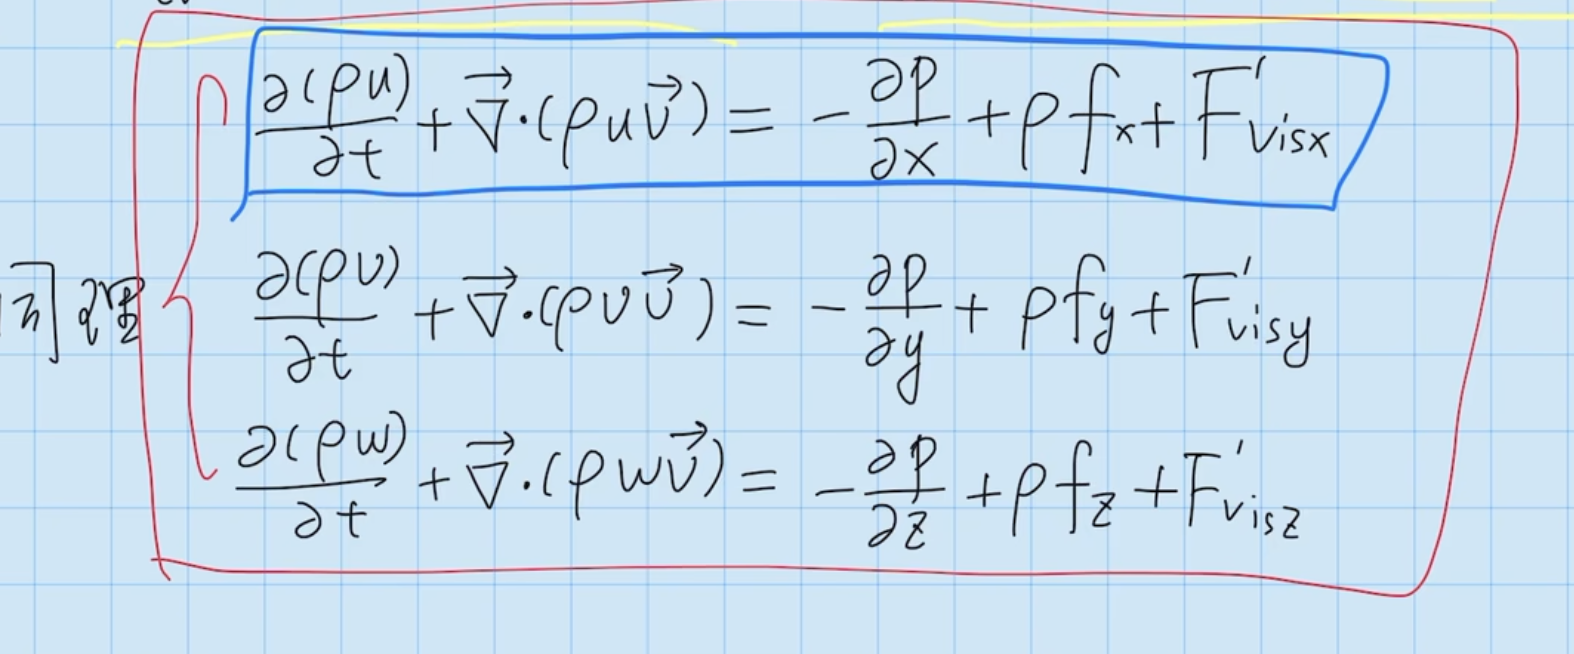 ∂(ρu)/∂t + ∇⃗·(ρuv⃗) = -∂p/∂x + ρfx + F'visx
∂(ρv)/∂t + ∇⃗·(ρvv⃗) = -∂p/∂y + ρfy + F'visy
同理
∂(ρw)/∂t + ∇⃗·(ρwv⃗) = -∂p/∂z + ρfz + F'visz